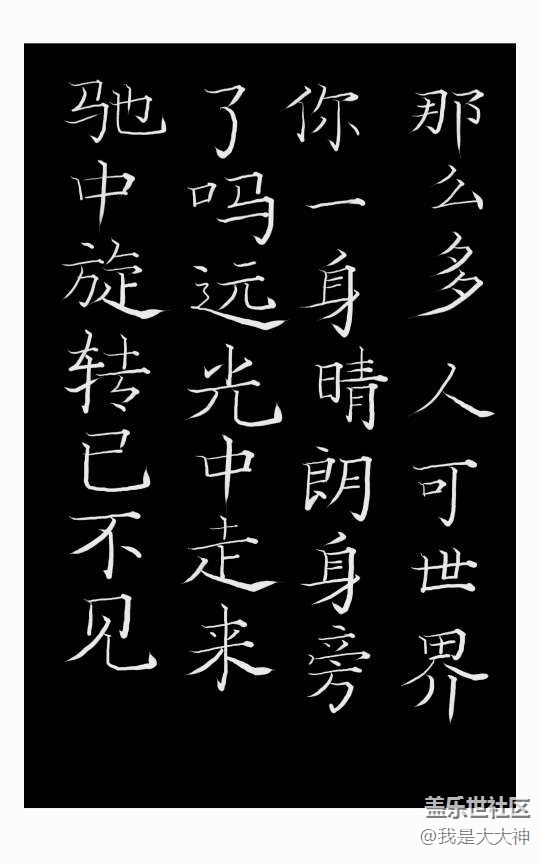 那么多人可世界
你一身晴朗身旁
了吗远光中走来
驰中旋转已不见
盖乐世社区
@我是大大神